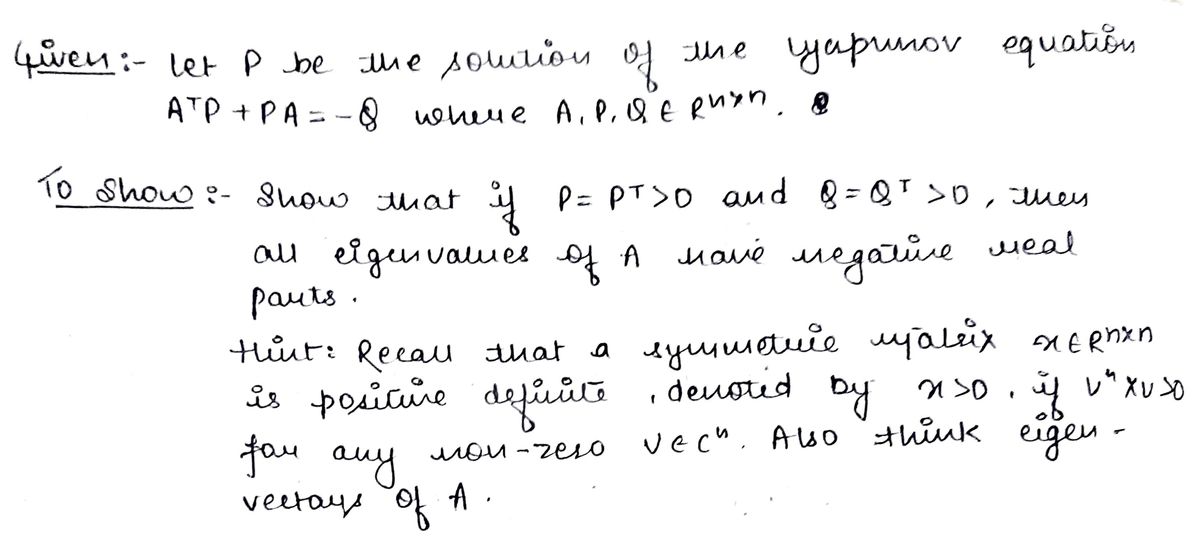 Given:- Let P be the solution of the lyapunov equation
AᵀP + PA = -Q where A, P, Q ∈ Rⁿˣⁿ.
To Show:- Show that if P = Pᵀ > 0 and Q = Qᵀ > 0, then
all eigenvalues of A have negative real
parts.
Hint: Recall that a symmetric matrix x ∈ Rⁿˣⁿ
is positive definite, denoted by x>0, if Vᴴ XV>0
for any non-zero V ∈ Cⁿ. Also think eigen-
vectors of A.